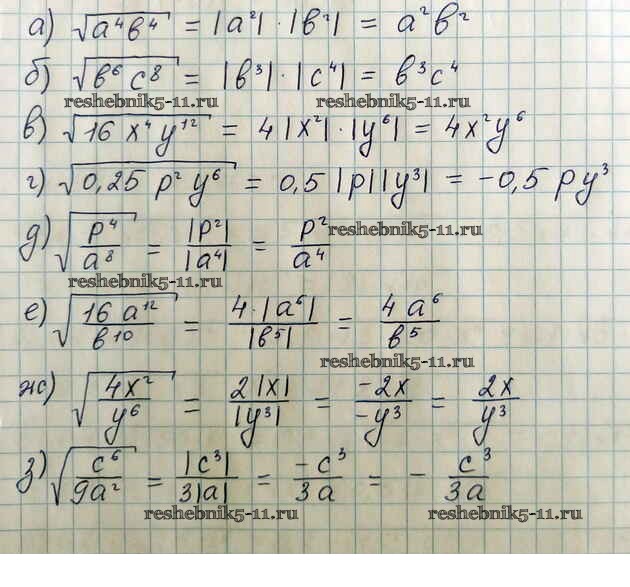 а) √a⁴b⁴ = |a²|·|b²| = a²b²
б) √b⁶c⁸ = |b³|·|c⁴| = b³c⁴
reshebnik5-11.ru reshebnik5-11.ru
в) √16x⁴y¹² = 4|x²|·|y⁶| = 4x²y⁶
г) √0,25p²y⁶ = 0,5|p||y³| = -0,5py³
д) √p⁴/a⁸ = |p²|/|a⁴| = p²/a⁴
reshebnik5-11.ru
reshebnik5-11.ru
е) √16a¹²/b¹⁰ = 4·|a⁶|/|b⁵| = 4a⁶/b⁵
reshebnik5-11.ru
ж) √4x²/y⁶ = 2|x|/|y³| = -2x/-y³ = 2x/y³
з) √c⁶/9a² = |c³|/3|a| = -c³/3a = - c³/3a
reshebnik5-11.ru reshebnik5-11.ru